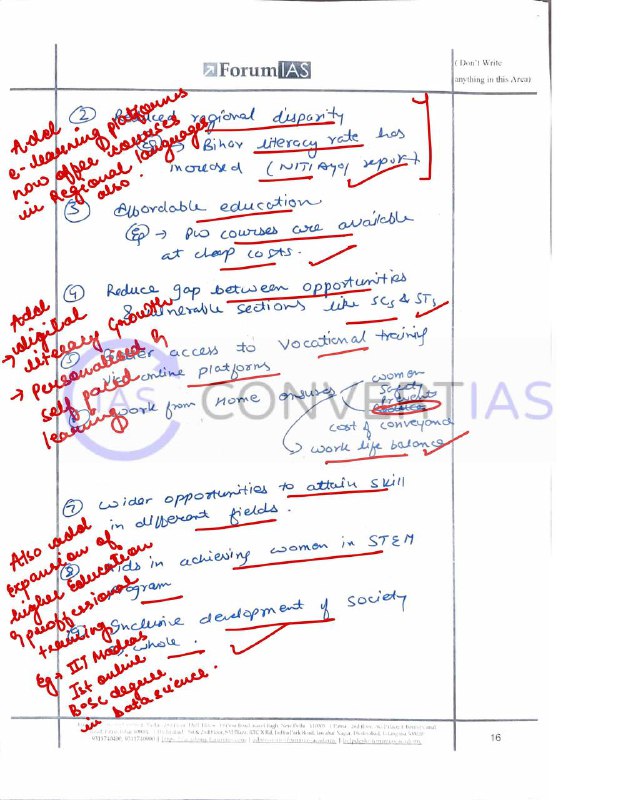 ForumIAS
(Don't Write
anything in this Area)
② Reduced regional disparity
Eg → Bihar literacy rate has
increased (NITI Ayog report).
Add
e-learning platforms
now offer courses
in Regional languages
also.
③ Affordable education
Eg → PW courses are available
at cheap costs.
④ Reduce gap between opportunities
& vulnerable sections like SCs & STs
Add
→ digital
literacy growth
→ Personalised &
self paced
learning
⑤ access to Vocational training
via online platforms
⑥ work from Home ensures
women
safety
cost of conveyance
work life balance
⑦ wider opportunities to attain skill
in different fields.
⑧ Aids in achieving women in STEM
program
⑨ Inclusive development of society
whole.
Also add
expansion of
higher education
& proffessional
training
Eg → IIT Madras
1st online
B.Sc degree
in data science.
CONVERTIAS
IAS
16